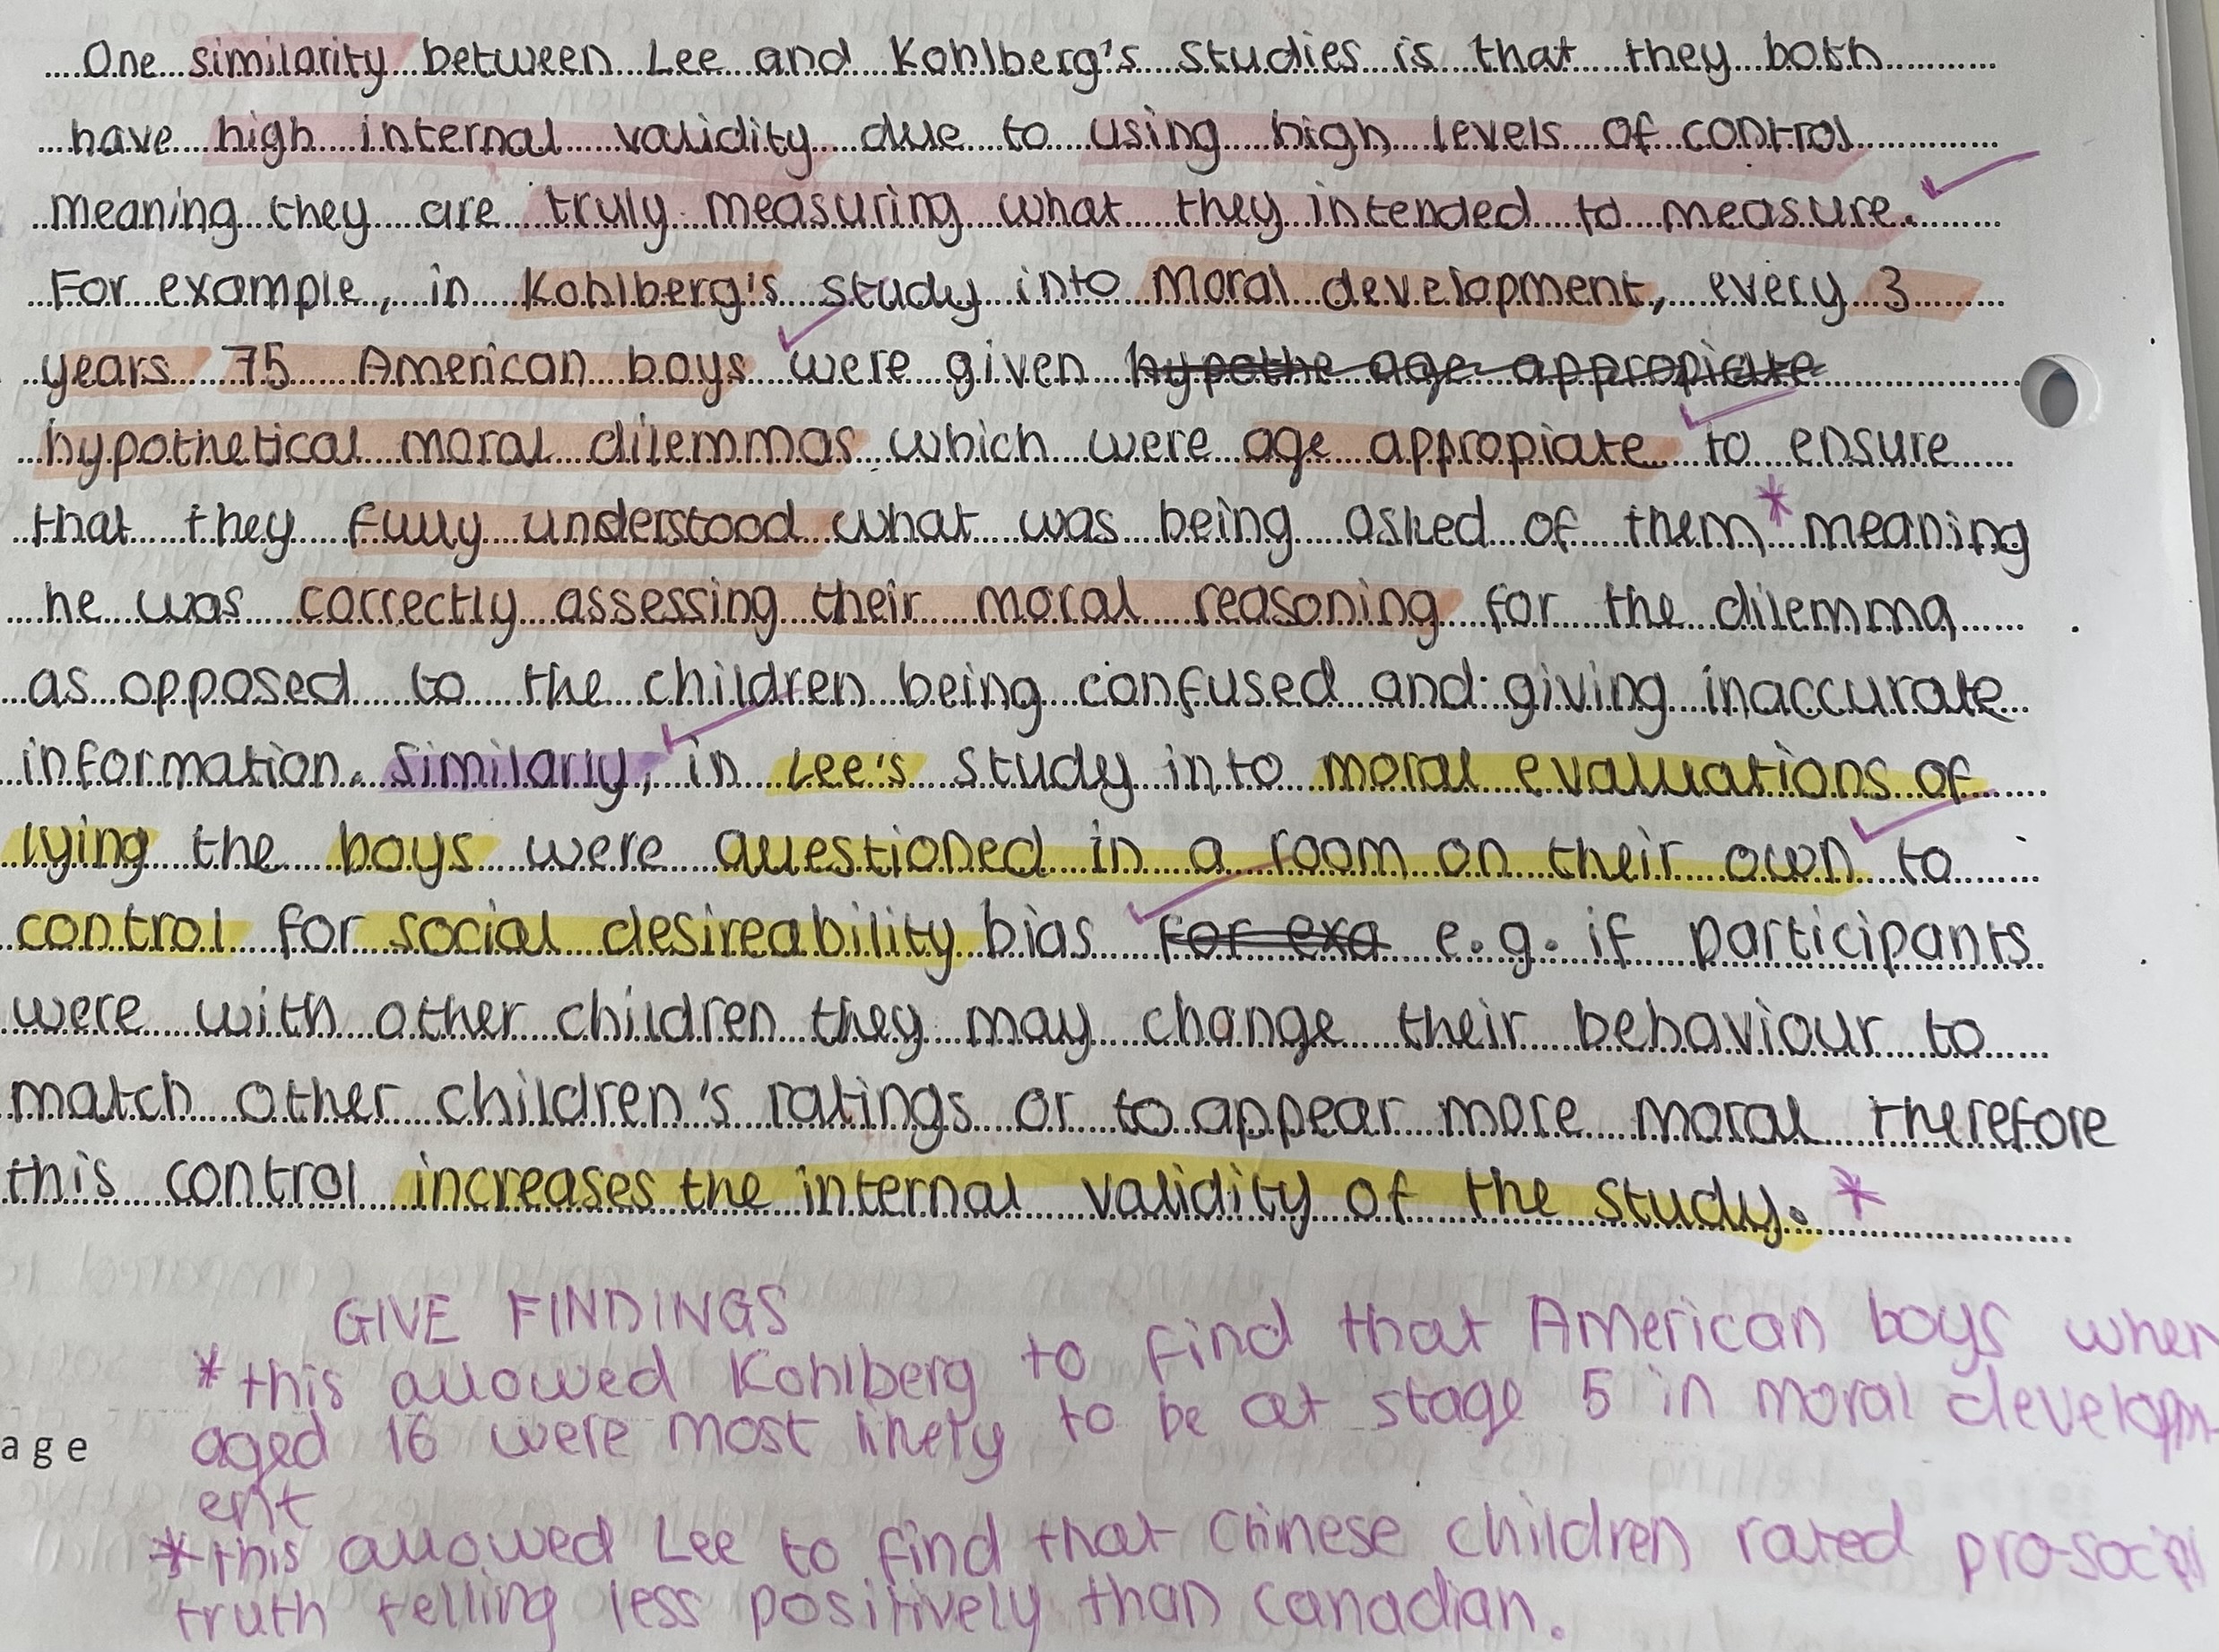 One similarity between Lee and Kohlberg's studies is that they both
have high internal validity due to using high levels of control
meaning they are truly measuring what they intended to measure.
For example, in Kohlberg's study into moral development, every 3
years 75 American boys were given hypothe age appropiate
hypothetical moral dilemmas which were age appropiate to ensure
that they fully understood what was being asked of them * meaning
he was correctly assessing their moral reasoning for the dilemma
as opposed to the children being confused and giving inaccurate
information. Similarly, in Lee's study into moral evaluations of
lying the boys were questioned in a room on their own to
control for social desireability bias for exa e.g. if participants
were with other children they may change their behaviour to
match other children's ratings or to appear more moral therefore
this control increases the internal validity of the study. *
GIVE FINDINGS
* this allowed Kohlberg to find that American boys when
aged 16 were most likely to be at stage 5 in moral developm
ent
age
* this allowed Lee to find that Chinese children rated pro-social
truth telling less positively than Canadian.